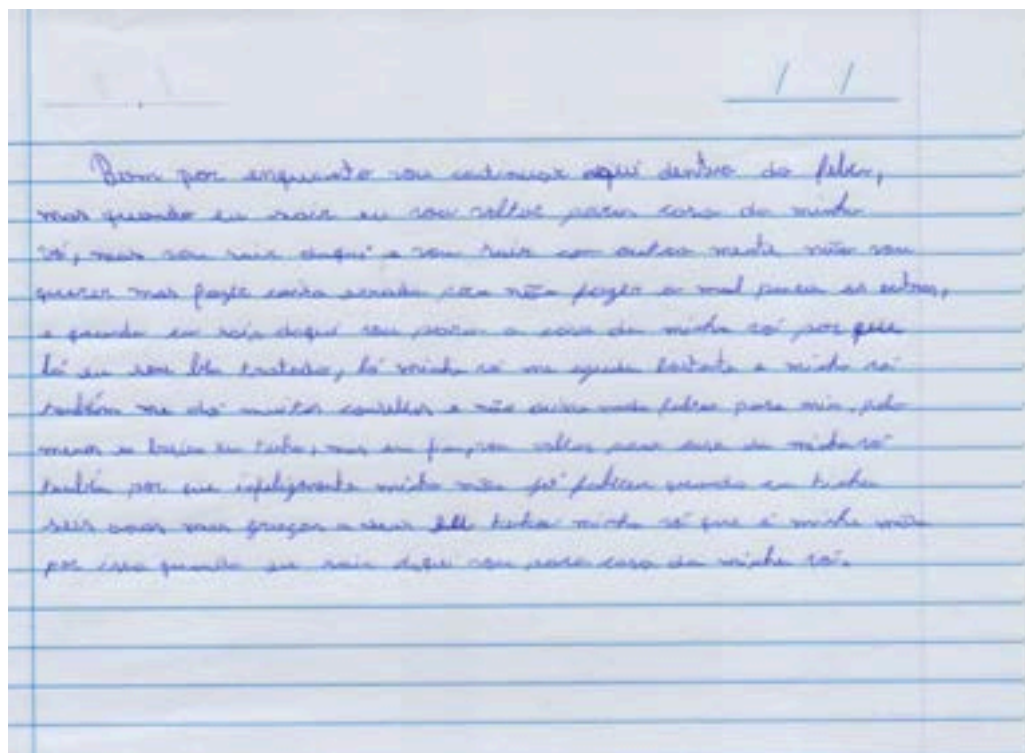 Bom por enquanto vou continuar aqui dentro da feben,
mas quando eu sair eu vou voltar para casa da minha
vó, mas vou sair daqui e vou sair com outra mente não vou
querer mas fazer coisa errada não fazer o mal para os outros,
e quando eu sair daqui vou para a casa da minha vó por que
lá eu sou bem tratado, lá minha vó me ajuda bastante e minha vó
também me dá muitos conselhos e não deixa nada faltar para mim, pelo
menos o básico eu tenho, mas em fim, vou voltar para casa da minha vó
também por que infelizmente minha mãe já faleceu quando eu tinha
seis anos mas graças a deus tenho minha vó que é minha mãe
por isso quando eu sair daqui vou para casa da minha vó.